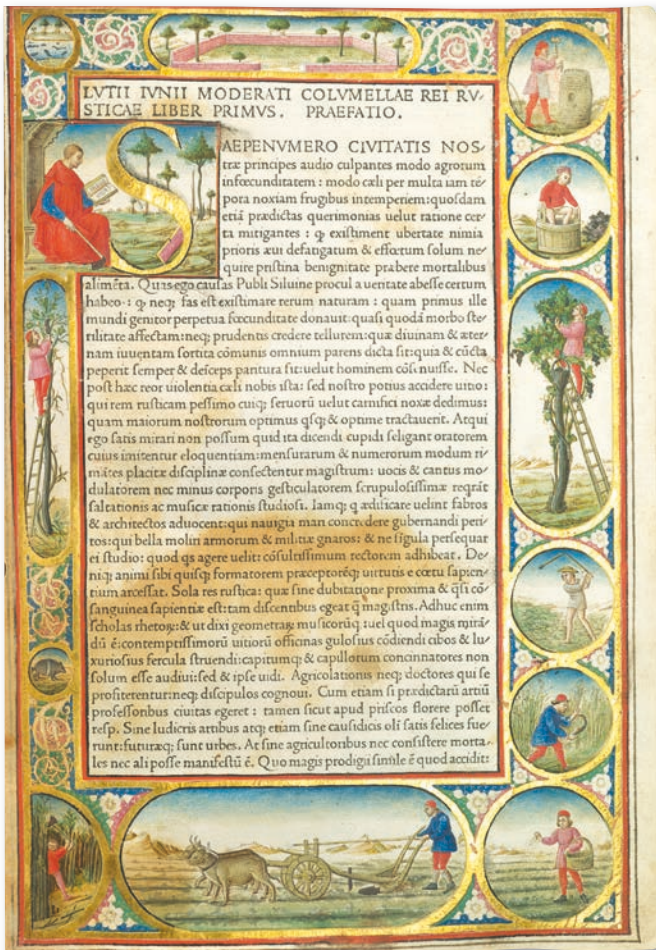 LVTII IVNII MODERATI COLVMELLAE REI RV-
STICAE LIBER PRIMVS. PRAEFATIO.
S AEPENVMERO CIVITATIS NOS-
træ principes audio culpantes modo agrorum
infœcunditatem : modo cæli per multa iam tē
pora noxiam frugibus intemperiem: quosdam
etiā prædictas querimonias uelut ratione cer
ta mitigantes : ꝙ existiment ubertate nimia
prioris æui defatigatum & effœtum solum ne-
quire pristina benignitate præbere mortalibus
alimēta. Quas ego causas Publi Siluine procul a ueritate abesse certum
habeo : ꝙ neqȝ fas est existimare rerum naturam : quam primus ille
mundi genitor perpetua fœcunditate donauit: quasi quodā morbo ste-
rilitate affectam: neqȝ prudentis credere tellurem: quæ diuinam & æter-
nam iuuentam sortita cōmunis omnium parens dicta sit: quia & cūcta
peperit semper & deīceps paritura sit: uelut hominem cōsenuisse. Nec
post hæc reor uiolentia cæli nobis ista: sed nostro potius accidere uitio:
qui rem rusticam pessimo cuiqȝ seruorū uelut carnifici noxæ dedimus:
quam maiorum nostrorum optimus qsqȝ & optime tractauerit. Atqui
ego satis mirari non possum quid ita dicendi cupidi seligant oratorem
cuius imitentur eloquentiam: mensurarum & numerorum modum ri
māres placitæ disciplinæ consectentur magistrum: uocis & cantus mo
dulatorem nec minus corporis gesticulatorem scrupulosissimæ reqrāt
saltationis ac musicæ rationis studiosi. Iamqȝ q ædificare uelint fabros
& architectos aduocent: qui nauigia mari concredere gubernandi peri
tos: qui bella moliri armorum & militiæ gnaros: & ne sigula persequar
ei studio: quod qs agere uelit: cōsultissimum rectorem adhibeat. De
niqȝ animi sibi quisqȝ formatorem præceptorēqȝ uirtutis e cœtu sapien-
tium arcessat. Sola res rustica: quæ sine dubitatione proxima & qsi cō
sanguinea sapientiæ est: tam discentibus egeat q̄ magistris. Adhuc enim
scholas rhetorȝ: & ut dixi geometrarȝ musicorūqȝ: uel quod magis mirā
dū ē: contemptissimorū uitiorū officinas gulosius cōdiendi cibos & lu-
xuriosius fercula struendi: capitumqȝ & capillorum concinnatores non
solum esse audiui: sed & ipse uidi. Agricolationis neqȝ doctores qui se
profiterentur: neqȝ discipulos cognoui. Cum etiam si prædictarū artiū
professoribus ciuitas egeret : tamen sicut apud priscos florere posset
resp. Sine ludicris artibus atqȝ etiam sine causidicis olī satis felices fue
runt: futuræqȝ sunt urbes. At sine agricultoribus nec consistere morta-
les nec ali posse manifestū ē. Quo magis prodigii simile ē quod accidit: